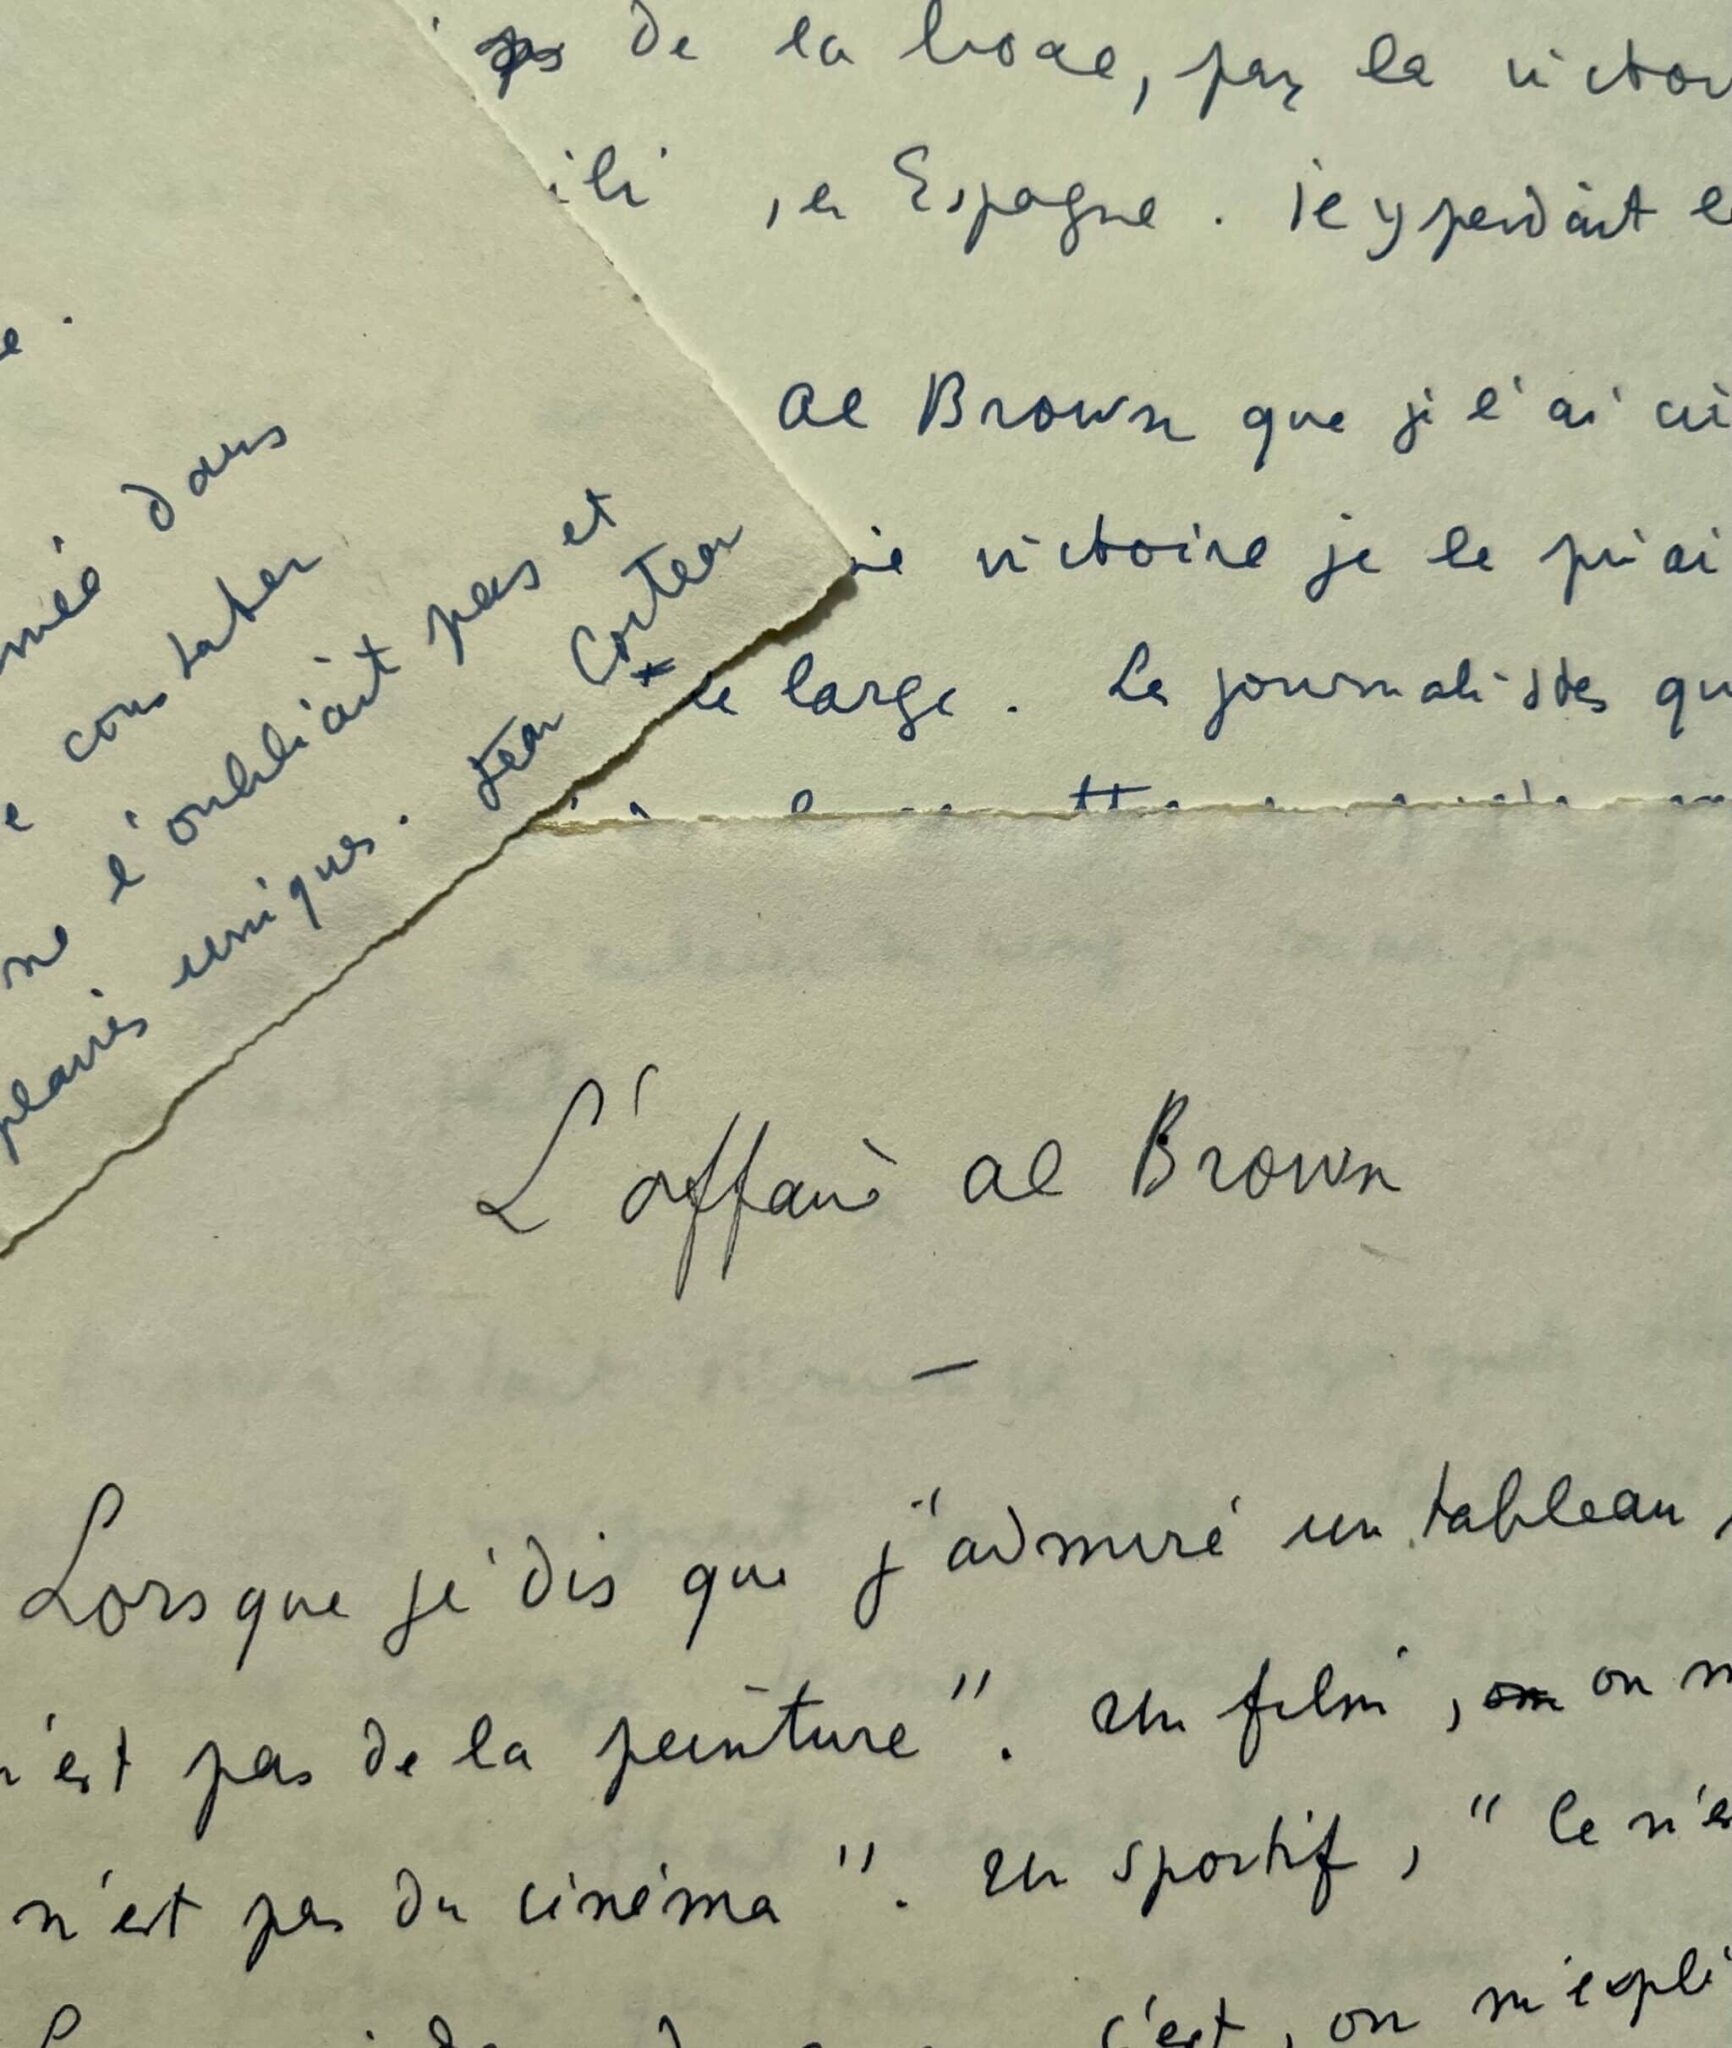 de la boxe, par la victoi
, en Espagne. je y perdait e
Al Brown que je l'ai
victoire je le priai
le large. Le journalistes qu
dans
constater
ne l'oubliait pas et
uniques. Jean Cocteau *
L'affaire Al Brown
—
Lorsque je dis que j'admire un tableau,
n'est pas de la peinture". Un film, on m
n'est pas du cinéma". Un sportif, "Ce n'es
c'est, on m'expli